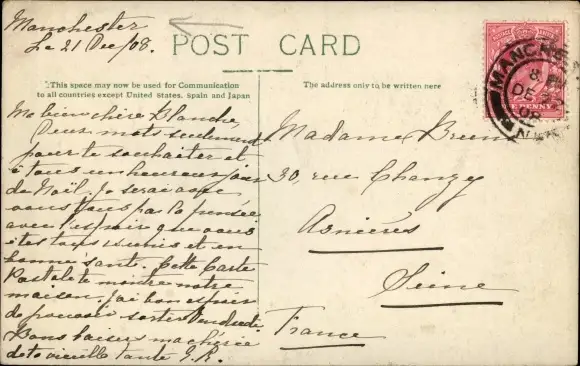 Manchester
Le 21 Dec/08.
POST CARD
This space may now be used for Communication
to all countries except United States, Spain and Japan
The address only to be written here
Ma bien chère Blanche
Deux mots seulement
pour te souhaiter et
à tous un heureux jour
de Noël. Je serai avec
vous tous par la pensée
avec l'espoir que vous
êtes tous réunis et en
bonne santé. Cette Carte
Postale te montre notre
maison, j'ai bon espoir
de pouvoir sortir Vendredi.
Bons baisers ma chérie
de ta vieille tante J.R.
Madame Brun
30, rue Chanzy
Asnières
Seine
France
MANCHES
8
DE
08
ONE PENNY